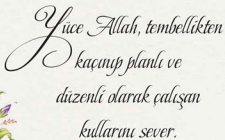 Yüce Allah, tembellikten
kaçınıp planlı ve
düzenli olarak çalışan
kullarını sever.